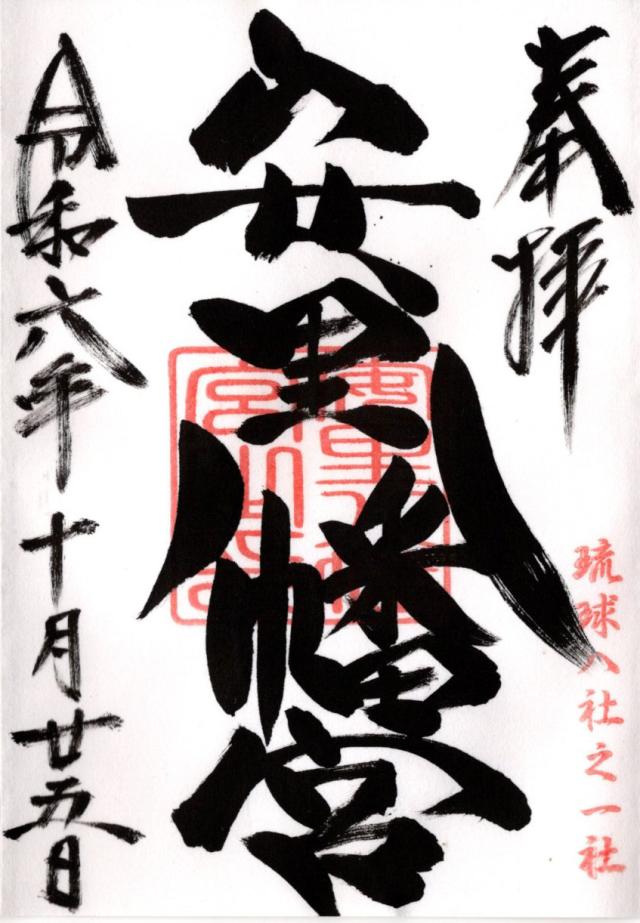 奉拝
琉球八社之一社
安里八幡宮
令和六年十月廿五日